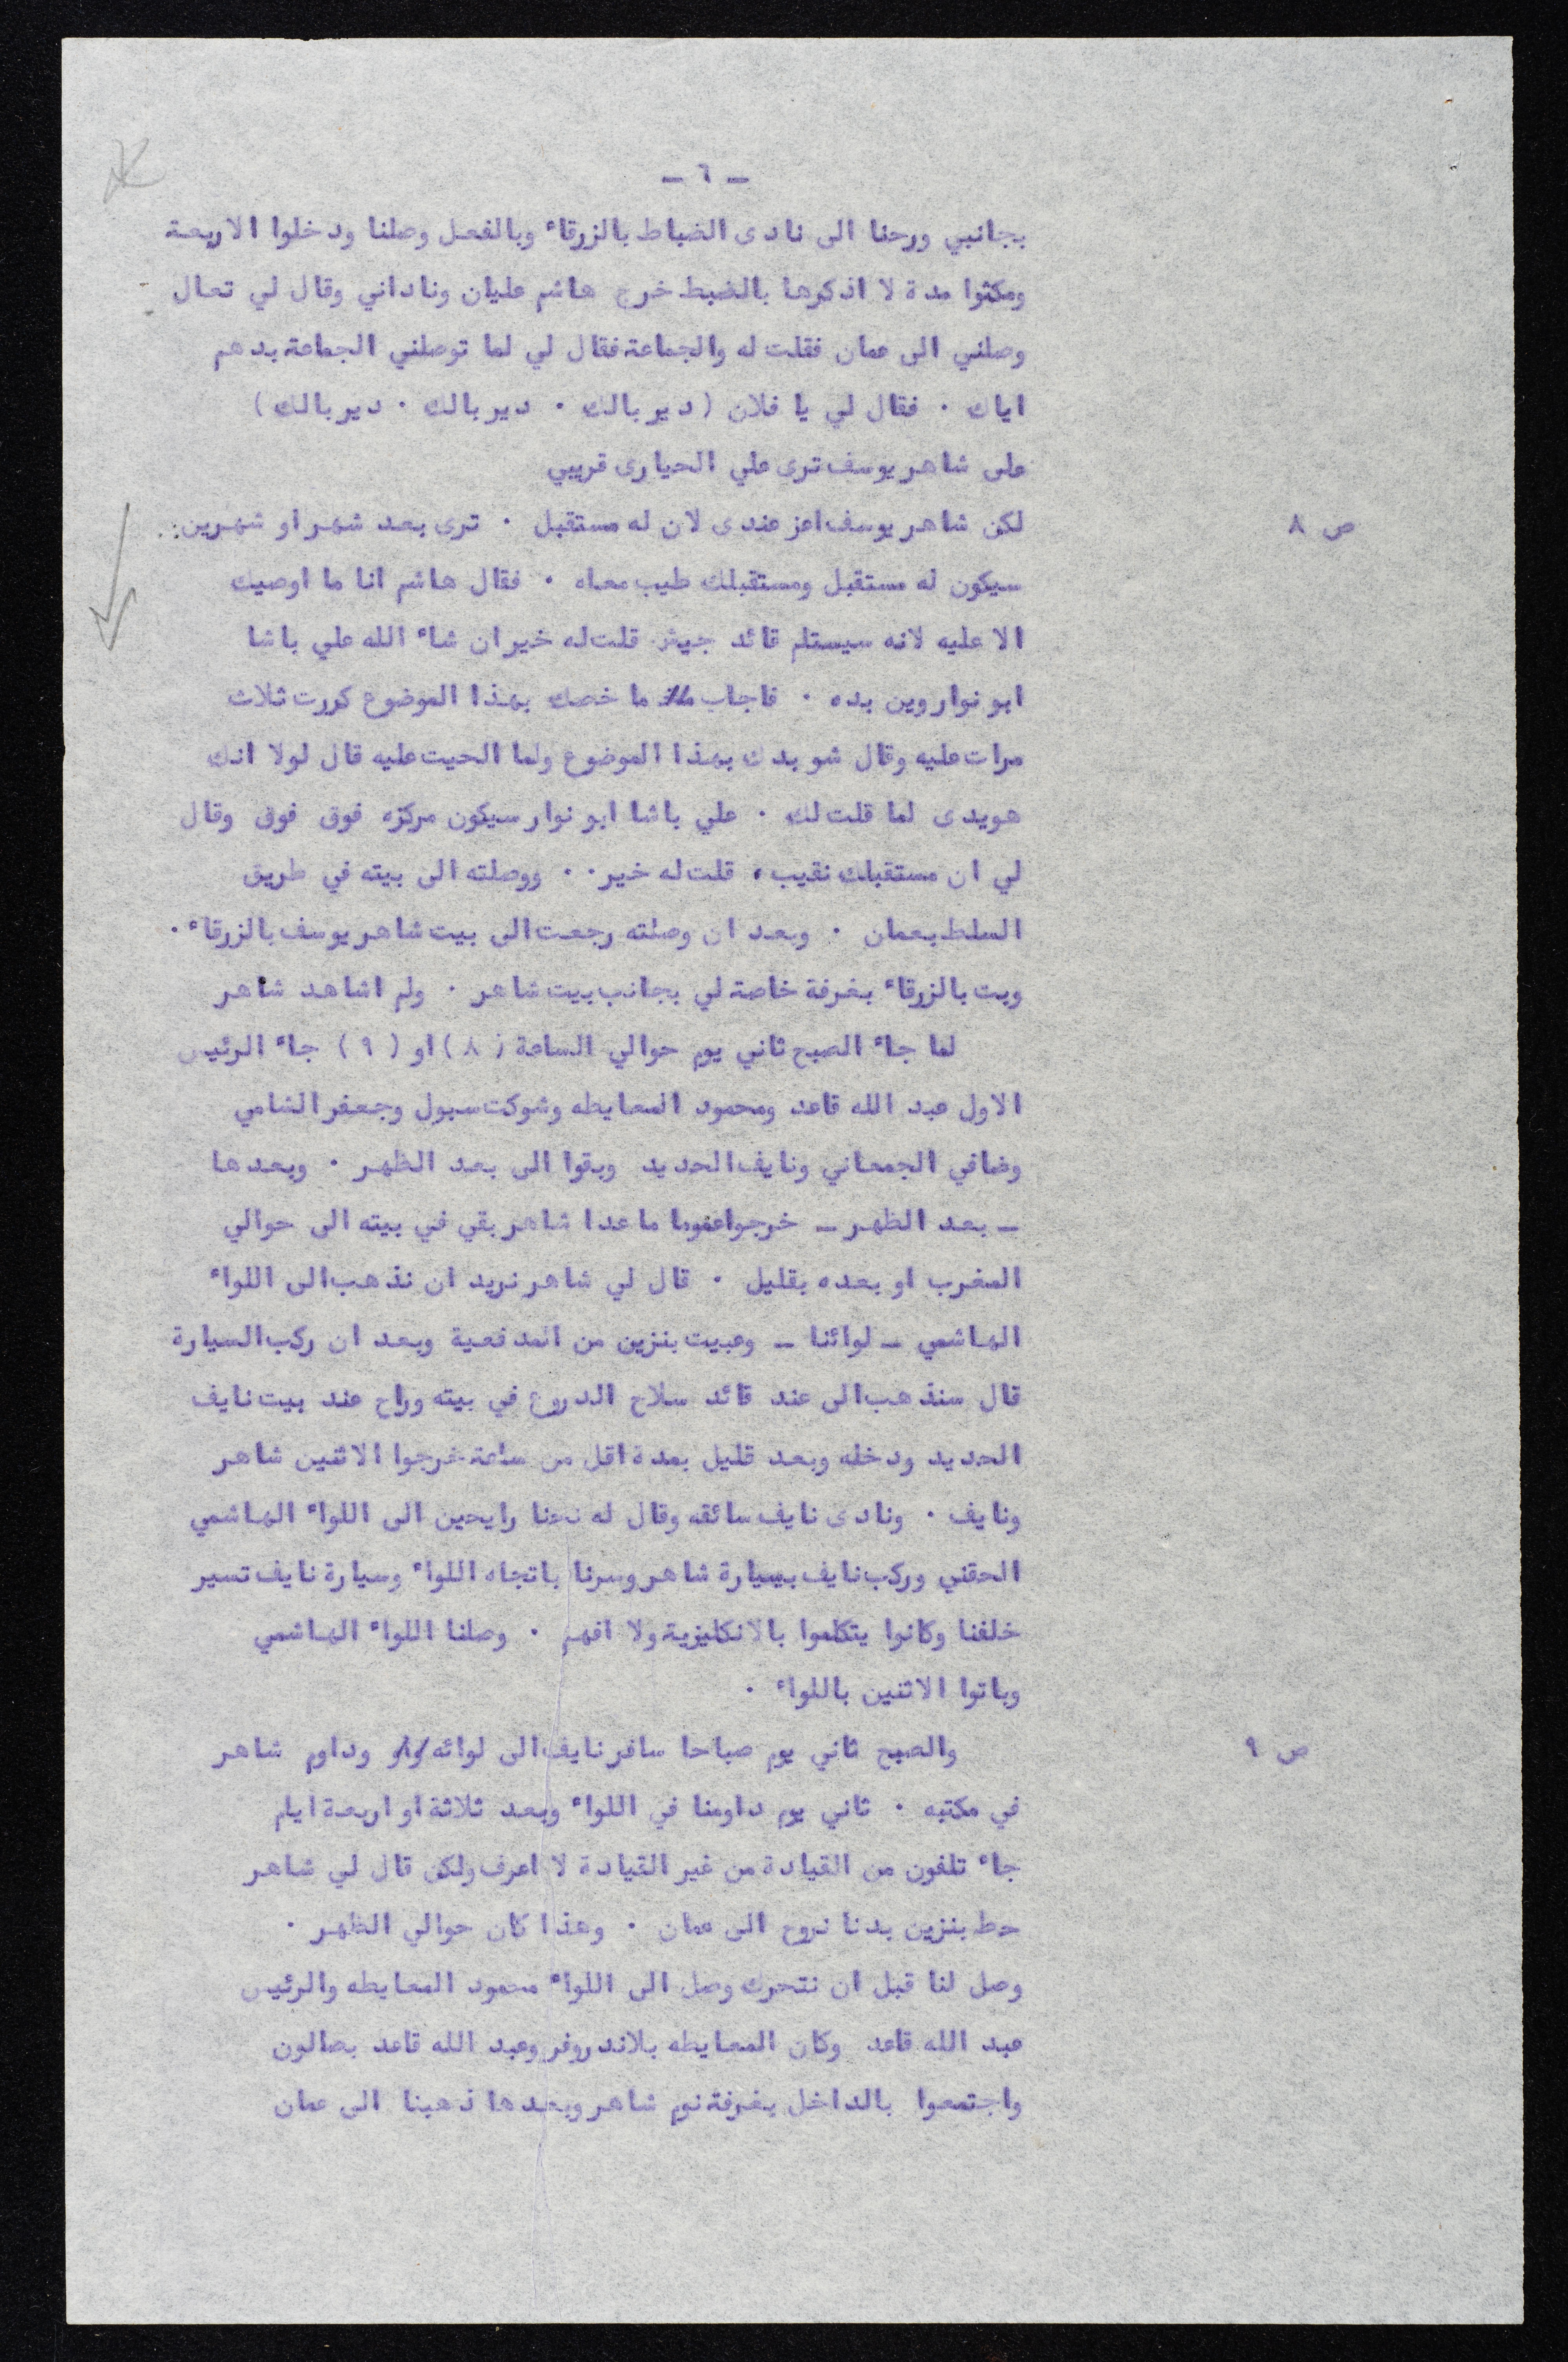 - ٦ -
بجانبي ورحنا الى نادى الضباط بالزرقاء وبالفعل وصلنا ودخلوا الاربعة
ومكثوا مدة لا اذكرها بالضبط خرج هاشم عليان وناداني وقال لي تعال
وصلني الى عمان فقلت له والجماعة فقال لي لما توصلني الجماعة بدهم
اياك ٠ فقال لي يا فلان ( دير بالك ٠ دير بالك ٠ دير بالك )
على شاهر يوسف ترى علي الحيارى قريبي
ص ٨ لكن شاهر يوسف اعز عندى لان له مستقبل ٠ ترى بعد شهر او شهرين
سيكون له مستقبل ومستقبلك طيب معاه ٠ فقال هاشم انا ما اوصيك
الا عليه لانه سيستلم قائد جيش قلت له خير ان شاء الله علي باشا
ابو نوار وين بده ٠ فاجاب ما خصك بهذا الموضوع كررت ثلاث
مرات عليه وقال شو بدك بهذا الموضوع ولما الحيت عليه قال لولا انك
هويدى لما قلت لك ٠ علي باشا ابو نوار سيكون مركزه فوق فوق وقال
لي ان مستقبلك نقيب، قلت له خير ٠٠ ووصلته الى بيته في طريق
السلط بعمان ٠ وبعد ان وصلته رجعت الى بيت شاهر يوسف بالزرقاء ٠
وبت بالزرقاء بغرفة خاصة لي بجانب بيت شاهر ٠ ولم اشاهد شاهر
لما جاء الصبح ثاني يوم حوالي الساعة ( ٨ ) او ( ٩ ) جاء الرئيس
الاول عبد الله قاعد ومحمود المعايطه وشوكت سبول وجعفر الشامي
وضافي الجمعاني ونايف الحديد وبقوا الى بعد الظهر ٠ وبعدها
- بعد الظهر - خرجوا عموما ما عدا شاهر بقي في بيته الى حوالي
المغرب او بعده بقليل ٠ قال لي شاهر نريد ان نذهب الى اللواء
الهاشمي - لوائنا - وعبيت بنزين من المدفعية وبعد ان ركب السيارة
قال سنذهب الى عند قائد سلاح الدروع في بيته وراح عند بيت نايف
الحديد ودخله وبعد قليل بمدة اقل من ساعة خرجوا الاثنين شاهر
ونايف ٠ ونادى نايف سائقه وقال له نحنا رايحين الى اللواء الهاشمي
الحقني وركب نايف بسيارة شاهر وسرنا باتجاه اللواء وسيارة نايف تسير
خلفنا وكانوا يتكلموا بالانكليزية ولا افهم ٠ وصلنا اللواء الهاشمي
وباتوا الاثنين باللواء ٠
ص ٩ والصبح ثاني يوم صباحا سافر نايف الى لوائه وداوم شاهر
في مكتبه ٠ ثاني يوم داومنا في اللواء وبعد ثلاثة او اربعة ايام
جاء تلفون من القيادة من غير القيادة لا اعرف ولكن قال لي شاهر
حط بنزين بدنا نروح الى عمان ٠ وهذا كان حوالي الظهر ٠
وصل لنا قبل ان نتحرك وصل الى اللواء محمود المعايطه والرئيس
عبد الله قاعد وكان المعايطه بلاندروفر وعبد الله قاعد بصالون
واجتمعوا بالداخل بغرفة نوم شاهر وبعدها ذهبنا الى عمان